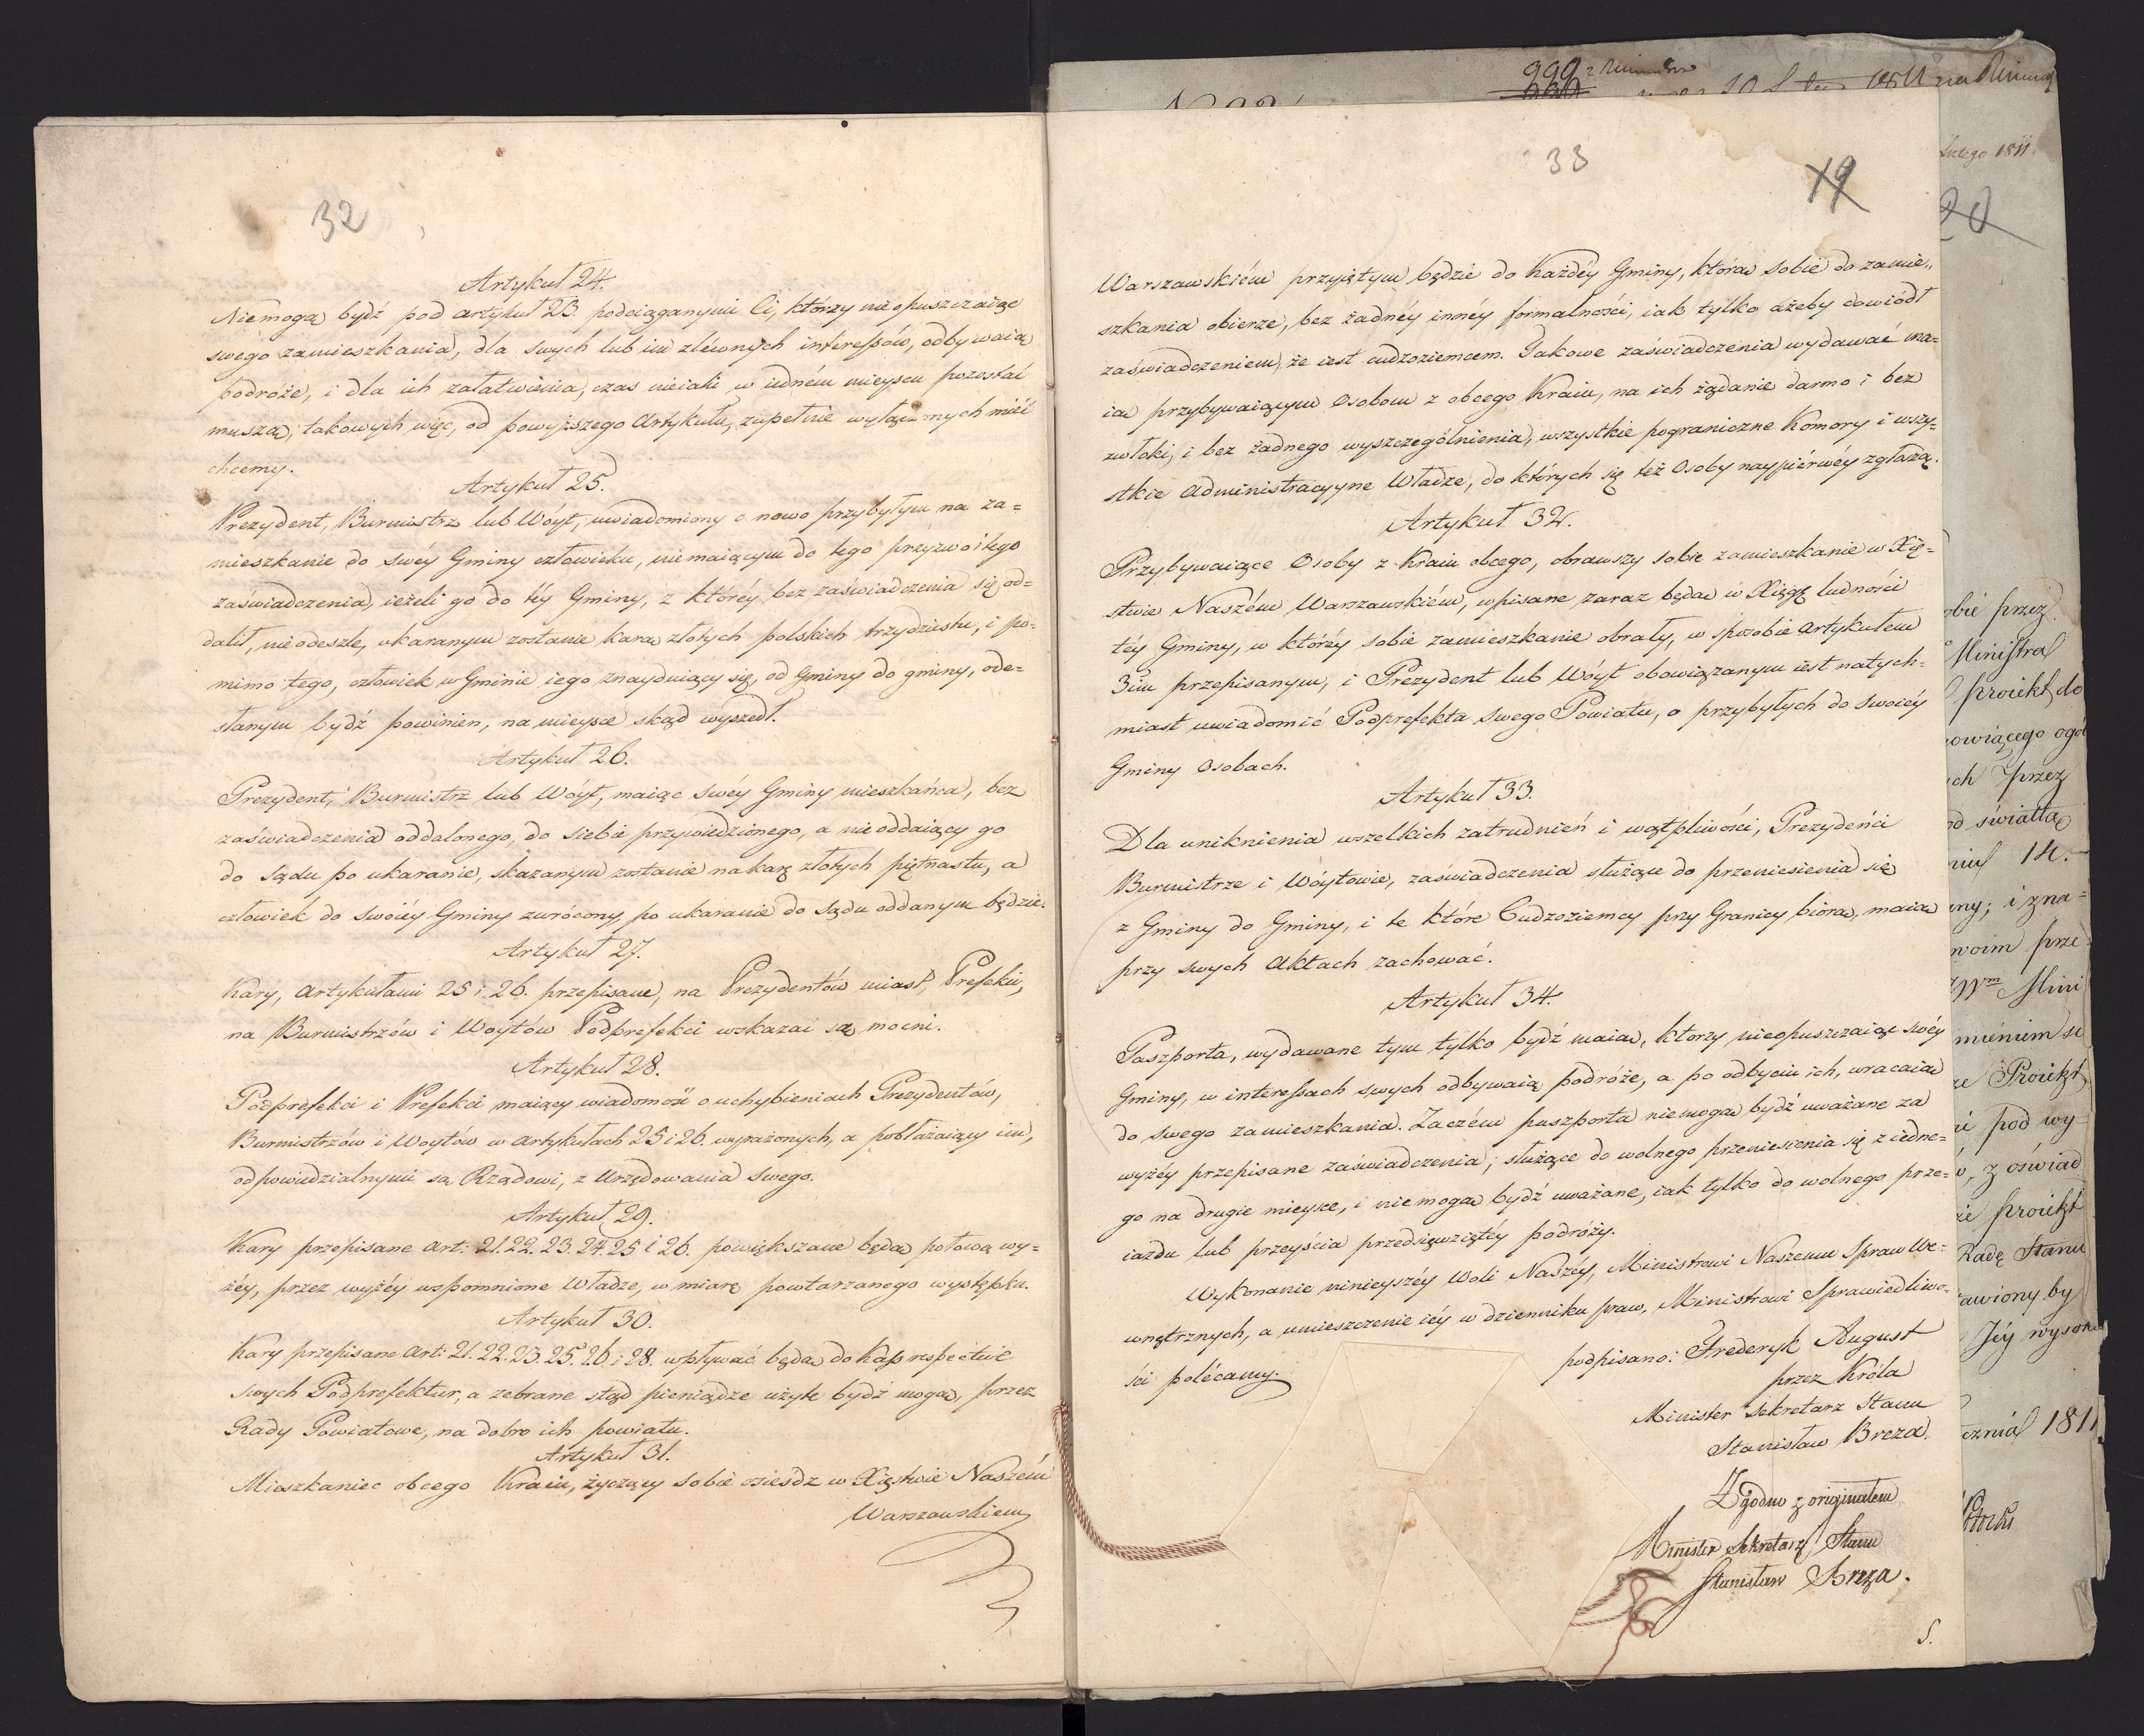 32
Artykuł 24.
Niemogą bydź pod artykuł 23. podciąganymi Ci, ktorzy nieopuszczaiąc
swego zamieszkania, dla swych lub im zleconych interessów, odbywaią
podroże, i dla ich załatwienia, czas nieiaki w iedném mieyscu pozostać
muszą, takowych więc, od powyższego Artykułu, zupełnie wyłączonych mieć
chcemy.
Artykuł 25.
Prezydent, Burmistrz lub Wóyt, uwiadomiony o nowo przybyłym na za=
mieszkanie do swéy Gminy człowieku, niemaiącym do tego przyzwoitego
zaświadczenia, ieżeli go do téy Gminy, z któréy bez zaświadczenia się od=
dalił, nieodeszle, ukaranym zostanie karą złotych polskich trzydziestu, i po=
mimo tego, człowiek w Gminie iego znayduiący się, od Gminy do gminy, ode=
słanym bydź powinien, na mieysce skąd wyszedł.
Artykuł 26.
Prezydent, Burmistrz lub Wóyt, maiąc swéy Gminy mieszkańca, bez
zaświadczenia oddalonego, do siebie przywiedzionego, a nie oddaiący go
do Sądu po ukaranie, skazanym zostanie na karę złotych piętnastu, a
człowiek do swoiéy Gminy zwrócony, po ukaranie do Sądu oddanym będzie.
Artykuł 27.
Kary, Artykułami 25 i 26. przepisane, na Prezydentów miast, Prefekci,
na Burmistrzów i Woytów Podprefekci wskazać są mocni.
Artykuł 28.
Podprefekci i Prefekci maiący wiadomość o uchybieniach Prezydentów,
Burmistrzów i Woytów w Artykułach 25 i 26. wyrażonych, a pobłażaiący im,
odpowiedzialnymi są Rządowi, z Urzędowania swego.
Artykuł 29.
Kary przepisane Art: 21. 22. 23. 24. 25 i 26. powiększane będą połową wy=
żéy, przez wyżéy wspomnione Władze, w miarę powtarzanego występku.
Artykuł 30.
Kary przepisane Art: 21. 22. 23. 25. 26 i 28. wpływać będą do Kass respective
swych Podprefektur, a zebrane stąd pieniądze użyte bydź mogą, przez
Rady Powiatowe, na dobro ich powiatu.
Artykuł 31.
Mieszkaniec obcego Kraiu, życzący sobie osieśdz w Xięstwie Naszém
Warszawskiem
33
19
Warszawskiém przyiętym będzie do Każdéy Gminy, którą sobie do zamie„
szkania obierze, bez żadnéy innéy formalności, iak tylko ażeby dowiódł
zaświadczeniem, że iest cudzoziemcem. Takowe zaświadczenia wydawać ma=
ią przybywaiącym Osobom z obcego Kraiu, na ich żądanie darmo i bez
zwłoki, i bez żadnego wyszczególnienia, wszystkie pograniczne Komory i wszy=
stkie Administracyyne Władze, do których się też Osoby naypiérwéy zgłaszą.
Artykuł 32.
Przybywaiące Osoby z Kraiu obcego, obrawszy sobie zamieszkanie w Xię=
stwie Naszém Warszawskiém, wpisane zaraz będą w Xięgę ludności
téy Gminy, w któréy sobie zamieszkanie obrały, w sposobie Artykułem
3im przepisanym, i Prezydent lub Wóyt obowiązanym iest natych=
miast uwiadomić Podprefekta swego Powiatu, o przybyłych do swoiéy
Gminy Osobach.
Artykuł 33.
Dla uniknienia wszelkich zatrudnień i wątpliwości, Prezydeńci
Burmistrze i Wóytowie, zaświadczenia służące do przeniesienia się
z Gminy do Gminy, i te które Cudzoziemcy przy Granicy biorą, maią
przy swych Aktach zachować.
Artykuł 34.
Paszporta, wydawane tym tylko bydź maią, ktorzy nieopuszczaiąc swéy
Gminy, w interessach swych odbywaią podróże, a po odbyciu ich, wracaią
do swego zamieszkania. Zaczém paszporta niemogą bydź uważane za
wyżéy przepisane zaświadczenia, służące do wolnego przeniesienia się z iedne=
go na drugie mieysce, i niemogą bydź uważane, iak tylko do wolnego prze=
iazdu lub przeyścia przedsięwziętéy podróży.
Wykonanie ninieyszéy Woli Naszéy, Ministrowi Naszemu Spraw We=
wnętrznych, a umieszczenie iéy w dzienniku praw, Ministrowi Sprawiedliwo=
ści polécamy.
podpisano: Frederyk August
przez Króla
Minister Sekretarz Stanu
Stanisław Breza.
Zgodno z originałem
Minister Sekretarz Stanu
Stanisław Breza.
S.
Lutego 1811.
20
obie przez
Ministra
proiekt do
ch przez
od światłą
14.
any; i zna=
woim prze
Proiekt
pod wy-
z oświad
proiekt
Radę Stanu
awiony by
Jéy wysok
1811